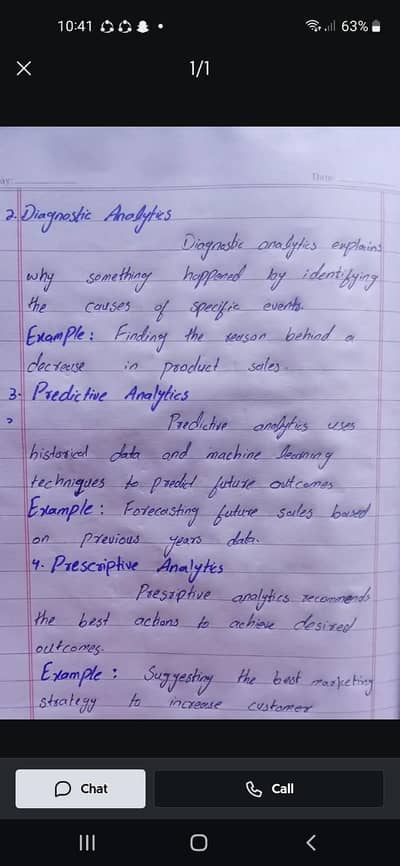 10:41
63%
1/1
Date
2. Diagnostic Analytics
Diagnostic analytics explains
why something happened by identifying
the causes of specific events.
Example: Finding the reason behind a
decrease in product sales.
3. Predictive Analytics
Predictive analytics uses
historical data and machine learning
techniques to predict future outcomes
Example: Forecasting future sales based
on previous years data.
4. Prescriptive Analytics
Presiptive analytics recommends
the best actions to achieve desired
outcomes.
Example: Suggesting the best marketing
strategy to increase customer
Chat
Call